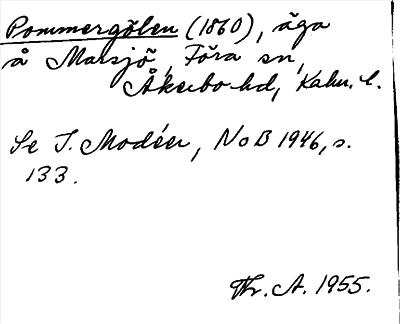 Pommergölen (1860), äga
å Malsjö, Föra sn,
Åkerbo hd, Kalm. l.
Se I. Modéer, NoB 1946, s.
133.
Thr. A. 1955.